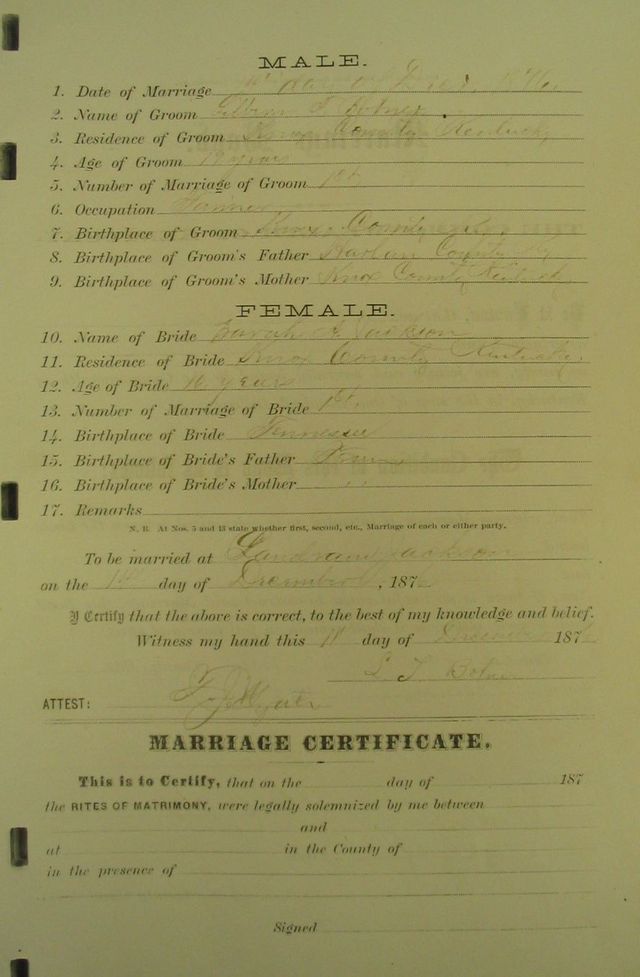 MALE.
1. Date of Marriage
2. Name of Groom
3. Residence of Groom Knox County Kentucky
4. Age of Groom 19 years
5. Number of Marriage of Groom 1st
6. Occupation Farmer
7. Birthplace of Groom Knox County
8. Birthplace of Groom's Father Harlan County Ky
9. Birthplace of Groom's Mother Knox County Kentucky
FEMALE.
10. Name of Bride Sarah Jackson
11. Residence of Bride Knox County Kentucky
12. Age of Bride 16 years
13. Number of Marriage of Bride 1st
14. Birthplace of Bride Tennessee
15. Birthplace of Bride's Father
16. Birthplace of Bride's Mother " "
17. Remarks
N. B. At Nos. 5 and 13 state whether first, second, etc., Marriage of each or either party.
To be married at Jackson
on the day of December, 187
I Certify that the above is correct, to the best of my knowledge and belief.
Witness my hand this day of December 187
ATTEST:
MARRIAGE CERTIFICATE.
This is to Certify, that on the day of 187
the RITES OF MATRIMONY, were legally solemnized by me between
and
at in the County of
in the presence of
Signed